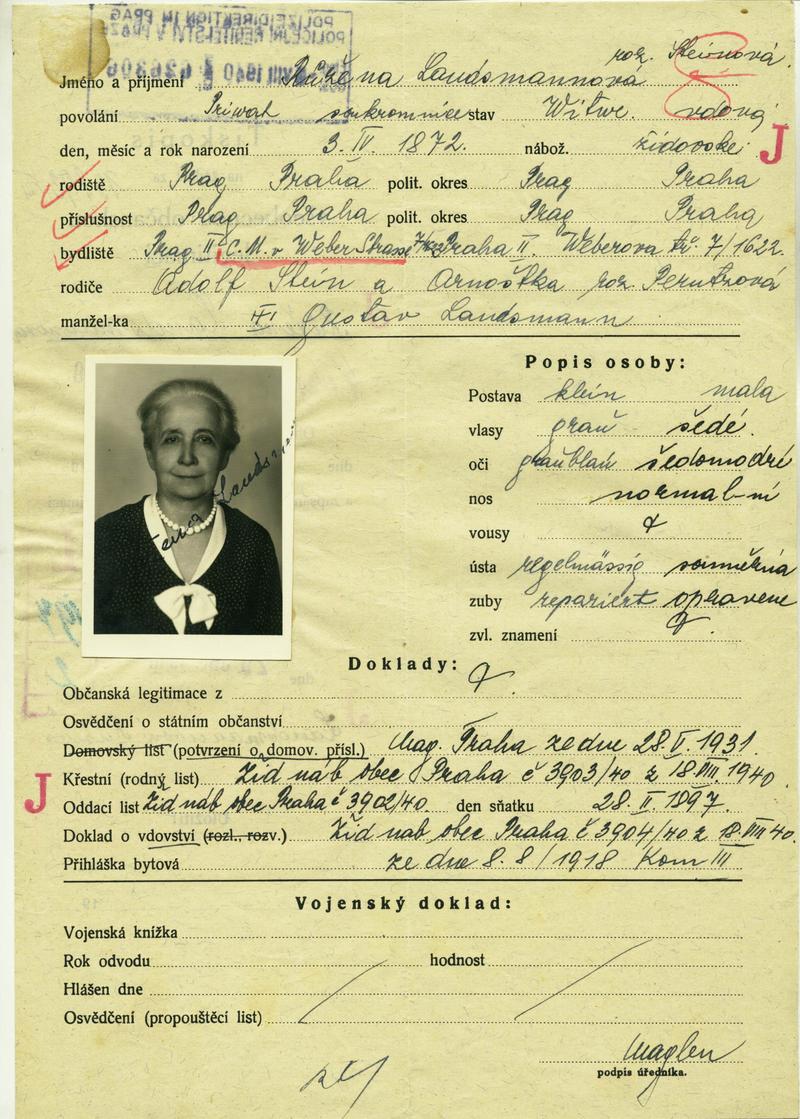 POLIZEIDIREKTION IN PRAG
POLICEJNÍ ŘEDITELSTVÍ V PRAZE
VIII 1940 626306
roz. Steinová
Jméno a příjmení Růžena Landsmannová
povolání Privat soukromnice stav Witwe. vdova
den, měsíc a rok narození 3. IV. 1872. nábož. židovské
J
rodiště Prag Praha polit. okres Prag Praha
příslušnost Prag Praha polit. okres Prag Praha
bydliště Prag II C. M. v Weber Strasse Praha II. Weberova tř. 7/1622.
rodiče Adolf Stein a Arnoštka roz. Perutzová
manžel-ka Gustav Landsmann
Popis osoby:
Postava klein mala
vlasy grau šedé.
oči graublau šedomodré
nos normal-ní
vousy
ústa regelmässig souměrná
zuby repariert opravene
zvl. znamení
Landsm
Doklady:
Občanská legitimace z
Osvědčení o státním občanství
Domovský list (potvrzení o domov. přísl.) Mag. Praha ze dne 28. V. 1931.
Křestní (rodný list) Žid náb obec Praha č 3903/40 z 18. VIII. 1940.
J
Oddací list Žid náb obec Praha č 3902/40. den sňatku 28. II. 1897.
Doklad o vdovství (rozl., rozv.) Žid nab obec Praha č 3904/40 z 18. VIII 40.
Přihláška bytová ze dne 8. 8/1918 Kom III
Vojenský doklad:
Vojenská knížka
Rok odvodu hodnost
Hlášen dne
Osvědčení (propouštěcí list)
podpis úředníka.